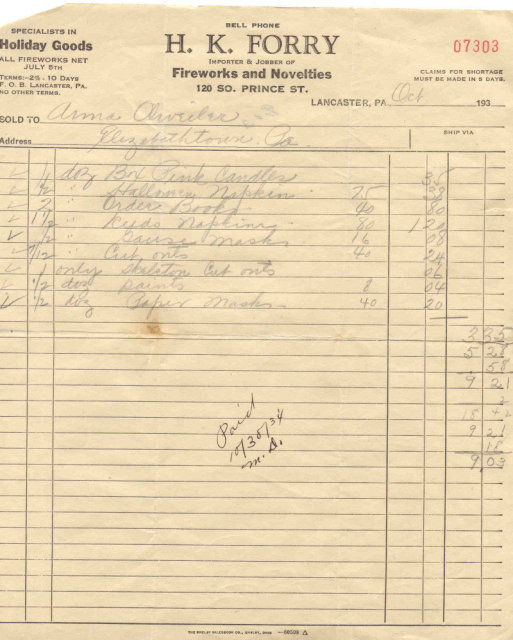 SPECIALISTS IN
Holiday Goods
ALL FIREWORKS NET
JULY 5TH
TERMS:-2% - 10 DAYS
F. O. B. LANCASTER, PA.
NO OTHER TERMS.
BELL PHONE
H. K. FORRY
IMPORTER & JOBBER OF
Fireworks and Novelties
120 SO. PRINCE ST.
07303
CLAIMS FOR SHORTAGE
MUST BE MADE IN 5 DAYS.
LANCASTER, PA. Oct 193
SOLD TO Anna
Address Elizabethtown, Pa
SHIP VIA
doz Box Pink Candles 35
1/2 " Halloween Napkin 75 38
2 " Order Books 40 80
1 1/2 " Napkins 80 1 20
1/2 " Gause Masks 16 08
7/12 " Cut outs 40 24
1 only Skeleton Cut outs 06
1/2 doz paints 8 04
1/2 doz Paper Masks 40 20
3 35
5 28
58
9 21
2
18 42
9 21
18
9,03
Paid
10/30/34
THE SHELBY SALESBOOK CO., SHELBY, OHIO —60593